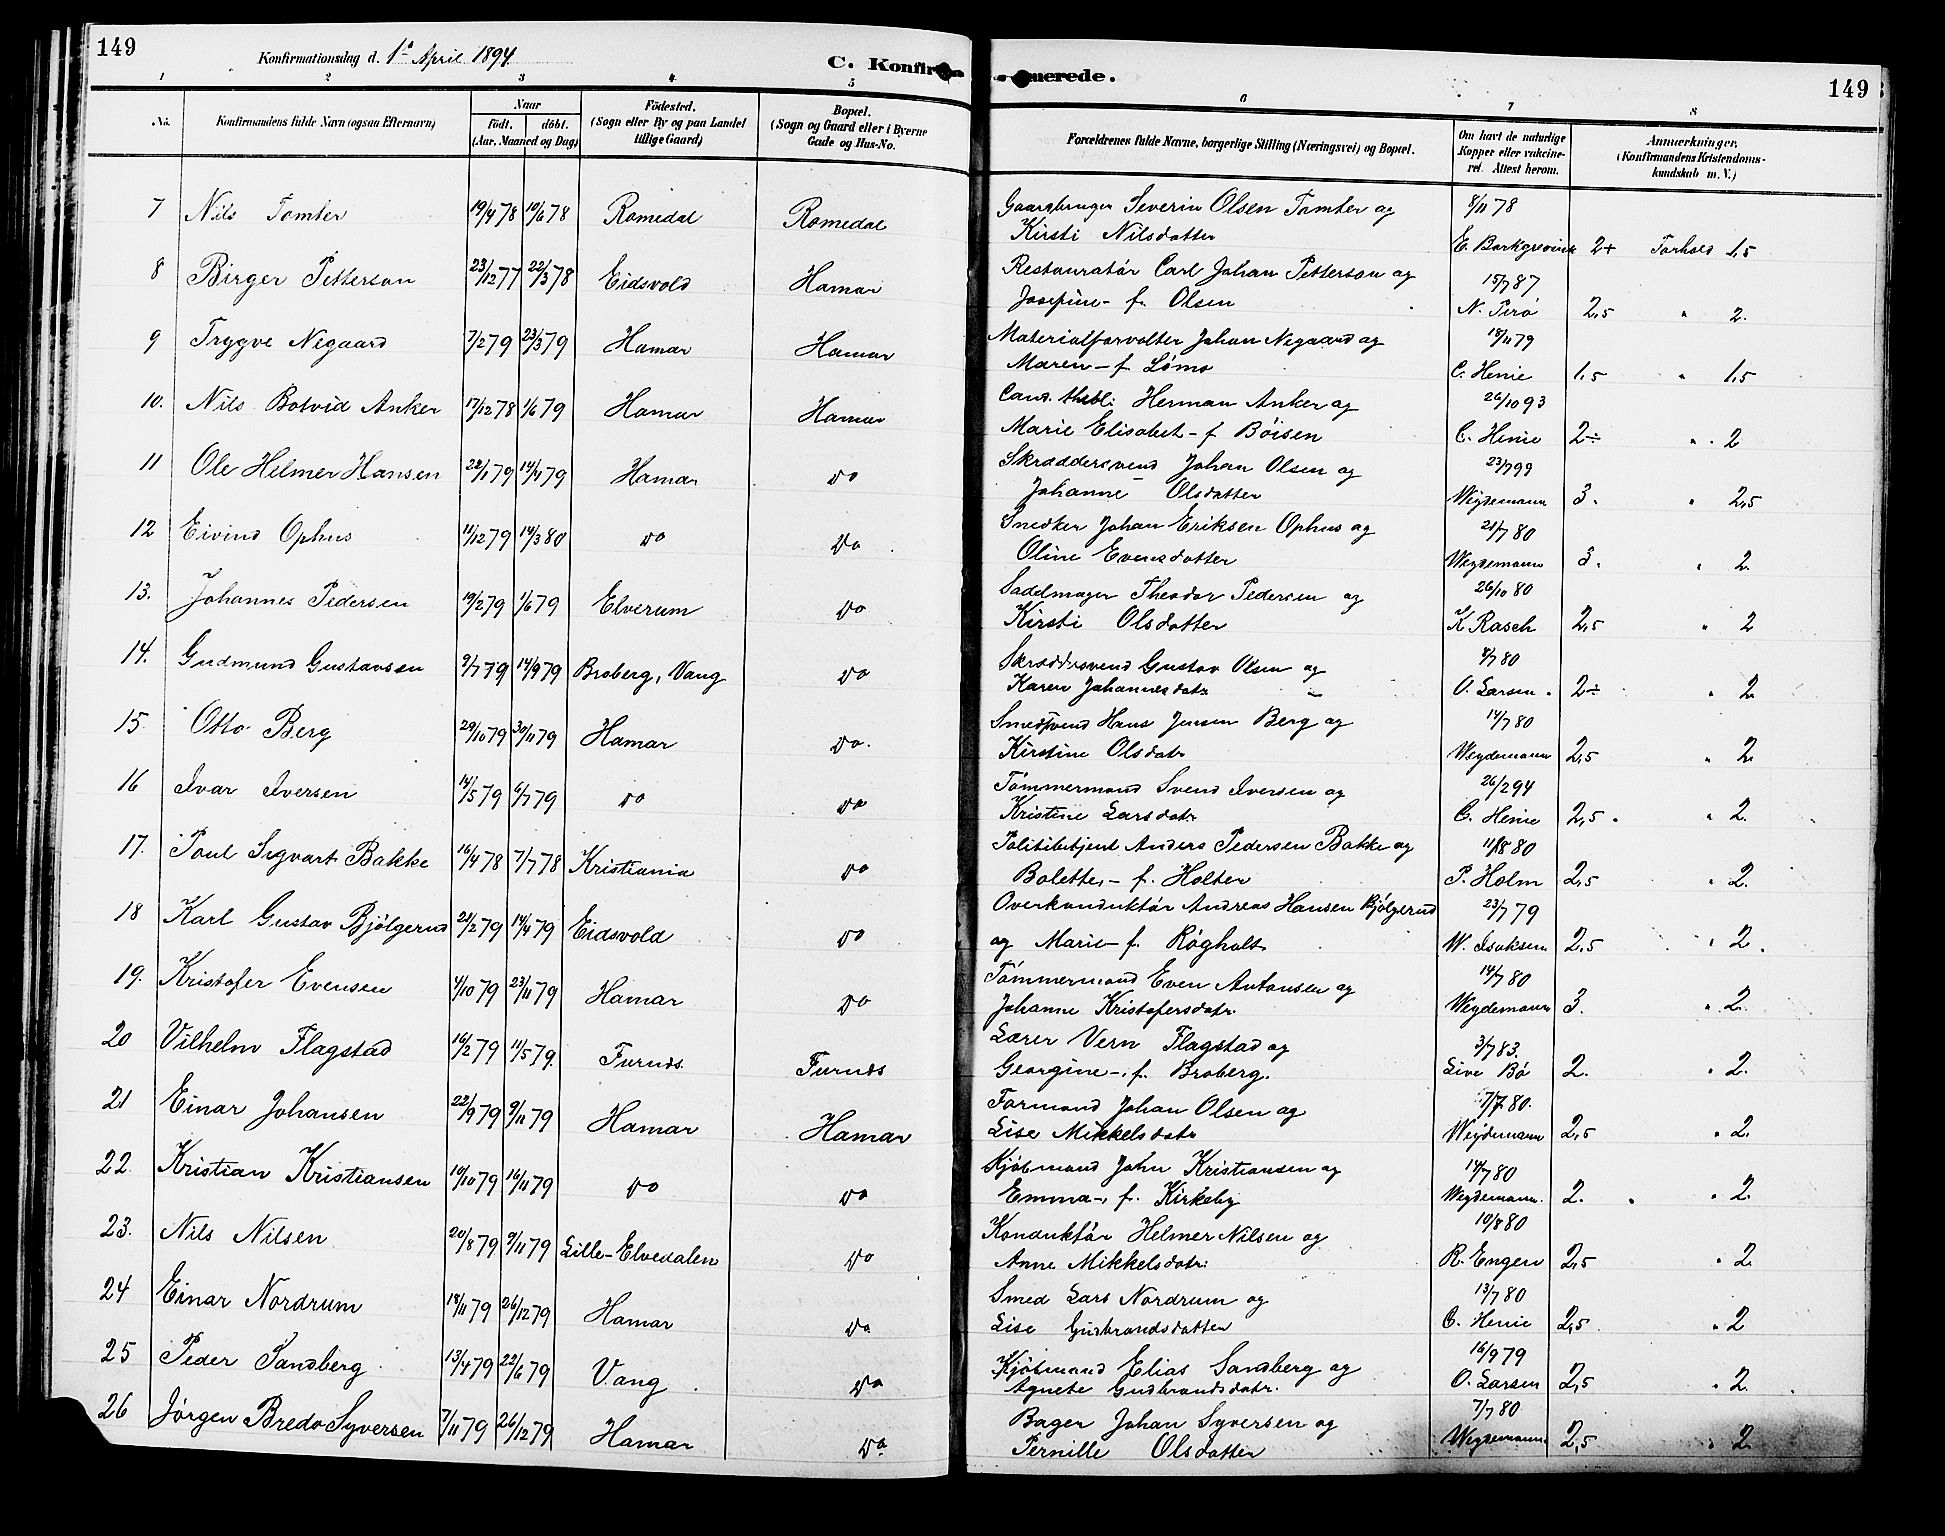 149
Konfirmationsdag d. 1ste April 1894
C. Konfir merede.
149
1 2 3 4 5 6 7 8
No. Konfirmandens fulde Navn (ogsaa Efternavn) Naar födt. döbt. (Aar, Maaned og Dag) Födested. (Sogn eller By og paa Landet tillige Gaard) Bopæl. (Sogn og Gaard eller i Byerne Gade og Hus-No. Forældrenes fulde Navne, borgerlige Stilling (Næringsvei) og Bopæl. Om havt de naturlige Kopper eller vakcineret. Attest herom. Anmærkninger, (Konfirmandens Kristendomskundskab m. V.)
7 Nils Tomter 19/4 78 10/6 78 Romedal Romedal Gaardbruger Severin Olsen Tomter og 8/11 78
Kirsti Nilsdatter E. Borkgrevink 2+ Forhold 1,5
8 Birger Petterson 23/12 77 22/3 78 Eidsvold Hamar Restauratør Carl Johan Petterson og 15/7 87
Josefine - f. Olsen N. Perö 2,5 " 2.
9 Trygve Negaard 7/2 79 23/3 79 Hamar Hamar Materialforvalter Johan Negaard og 18/11 79
Maren - f. Lömo C. Henie 1,5 " 1,5
10. Nils Botvid Anker 17/12 78 1/6 79 Hamar Hamar Cand. theol: Herman Anker og 26/10 93
Marie Elisabet - f. Böisen C. Henie 2÷ " 2
11 Ole Helmer Hansen 22/1 79 14/4 79 Hamar do Skræddersvend Johan Olsen og 23/7 99
Johanne Olsdatter Weydemann 3. " 2,5
12 Eivind Ophus 11/12 79 14/3 80 do do Snedker Johan Eriksen Ophus og 21/7 80
Oline Evensdatter Weydemann 3. " 2.
13. Johannes Pedersen 19/2 79 1/6 79 Elverum do Sadelmager Theodor Pedersen og 26/10 80
Kirsti Olsdatter K Rasch 2,5 " 2
14. Gudmund Gustavsen 9/7 79 14/9 79 Broberg, Vang do Skræddersvend Gustav Olsen og 8/7 80
Karen Johannesdatr O. Larsen. 2÷ " 2
15. Otto Berg 29/10 79 30/11 79 Hamar do. Smedsvend Hans Jensen Berg og 14/7 80
Kirstine Olsdatr Weydemann 2,5 " 2
16 Ivar Iversen 14/5 79 6/7 79 do do Tömmermand Svend Iversen og 26/2 94
Kristine Larsdatr C. Henie 2,5 " 2.
17. Poul Sigvart Bakke 16/4 78 7/7 78 Kristiania do Politibetjent Anders Pedersen Bakke og 11/8 80
Bolette, - f. Holter P. Holm 2,5 " 2.
18 Karl Gustav Bjölgerud 21/2 79 14/4 79 Eidsvold do Overkonduktör Andreas Hansen Bjölgerud 23/7 79
og Marie - f. Røgholt W. Isaksen 2,5 " 2.
19. Kristofer Evensen 4/10 79 23/11 79 Hamar do Tömmermand Even Antonsen og 14/7 80
Johanne Kristofersdatr. Weydemann 3. " 2.
20 Vilhelm Flagstad 16/2 79 11/5 79. Furnæs. Furnæs Lærer Vern Flagstad og 3/7 83.
Georgine -, f. Broberg. Live Bö 2. " 2.
21 Einar Johansen 22/9 79 9/11 79 Hamar Hamar Formand Johan Olsen og 7/7 80.
Lise Mikkelsdatr Weydemann 2,5 " 2.
22. Kristian Kristiansen 10/10 79 16/11 79 do do Kjöbmand John Kristiansen og 14/7 80
Emma -, f. Kirkeby Weydemann. 2. " 2.
23. Nils Nilsen 20/8 79 9/11 79 Lille-Elvedalen do Konduktör Helmer Nilsen og 10/8 80
Anne Mikkelsdatr: R. Engen 2,5 " 2
24 Einar Nordrum 18/11 79 26/12 79 Hamar do Smed Lars Nordrum og 13/7 80
Lise Gudbrandsdatter C. Henie 2,5 " 2
25 Peder Sandberg 13/4 79 22/6 79 Vang do Kjöbmand Elias Sandberg og 16/9 79
Agnete Gudbrandsdatr. O. Larsen 2,5 " 2.
26 Jörgen Bredo Syversen 7/11 79 26/12 79 Hamar do Bager Johan Syversen og 7/7 80
Pernille Olsdatter Weydemann 2,5 " 2